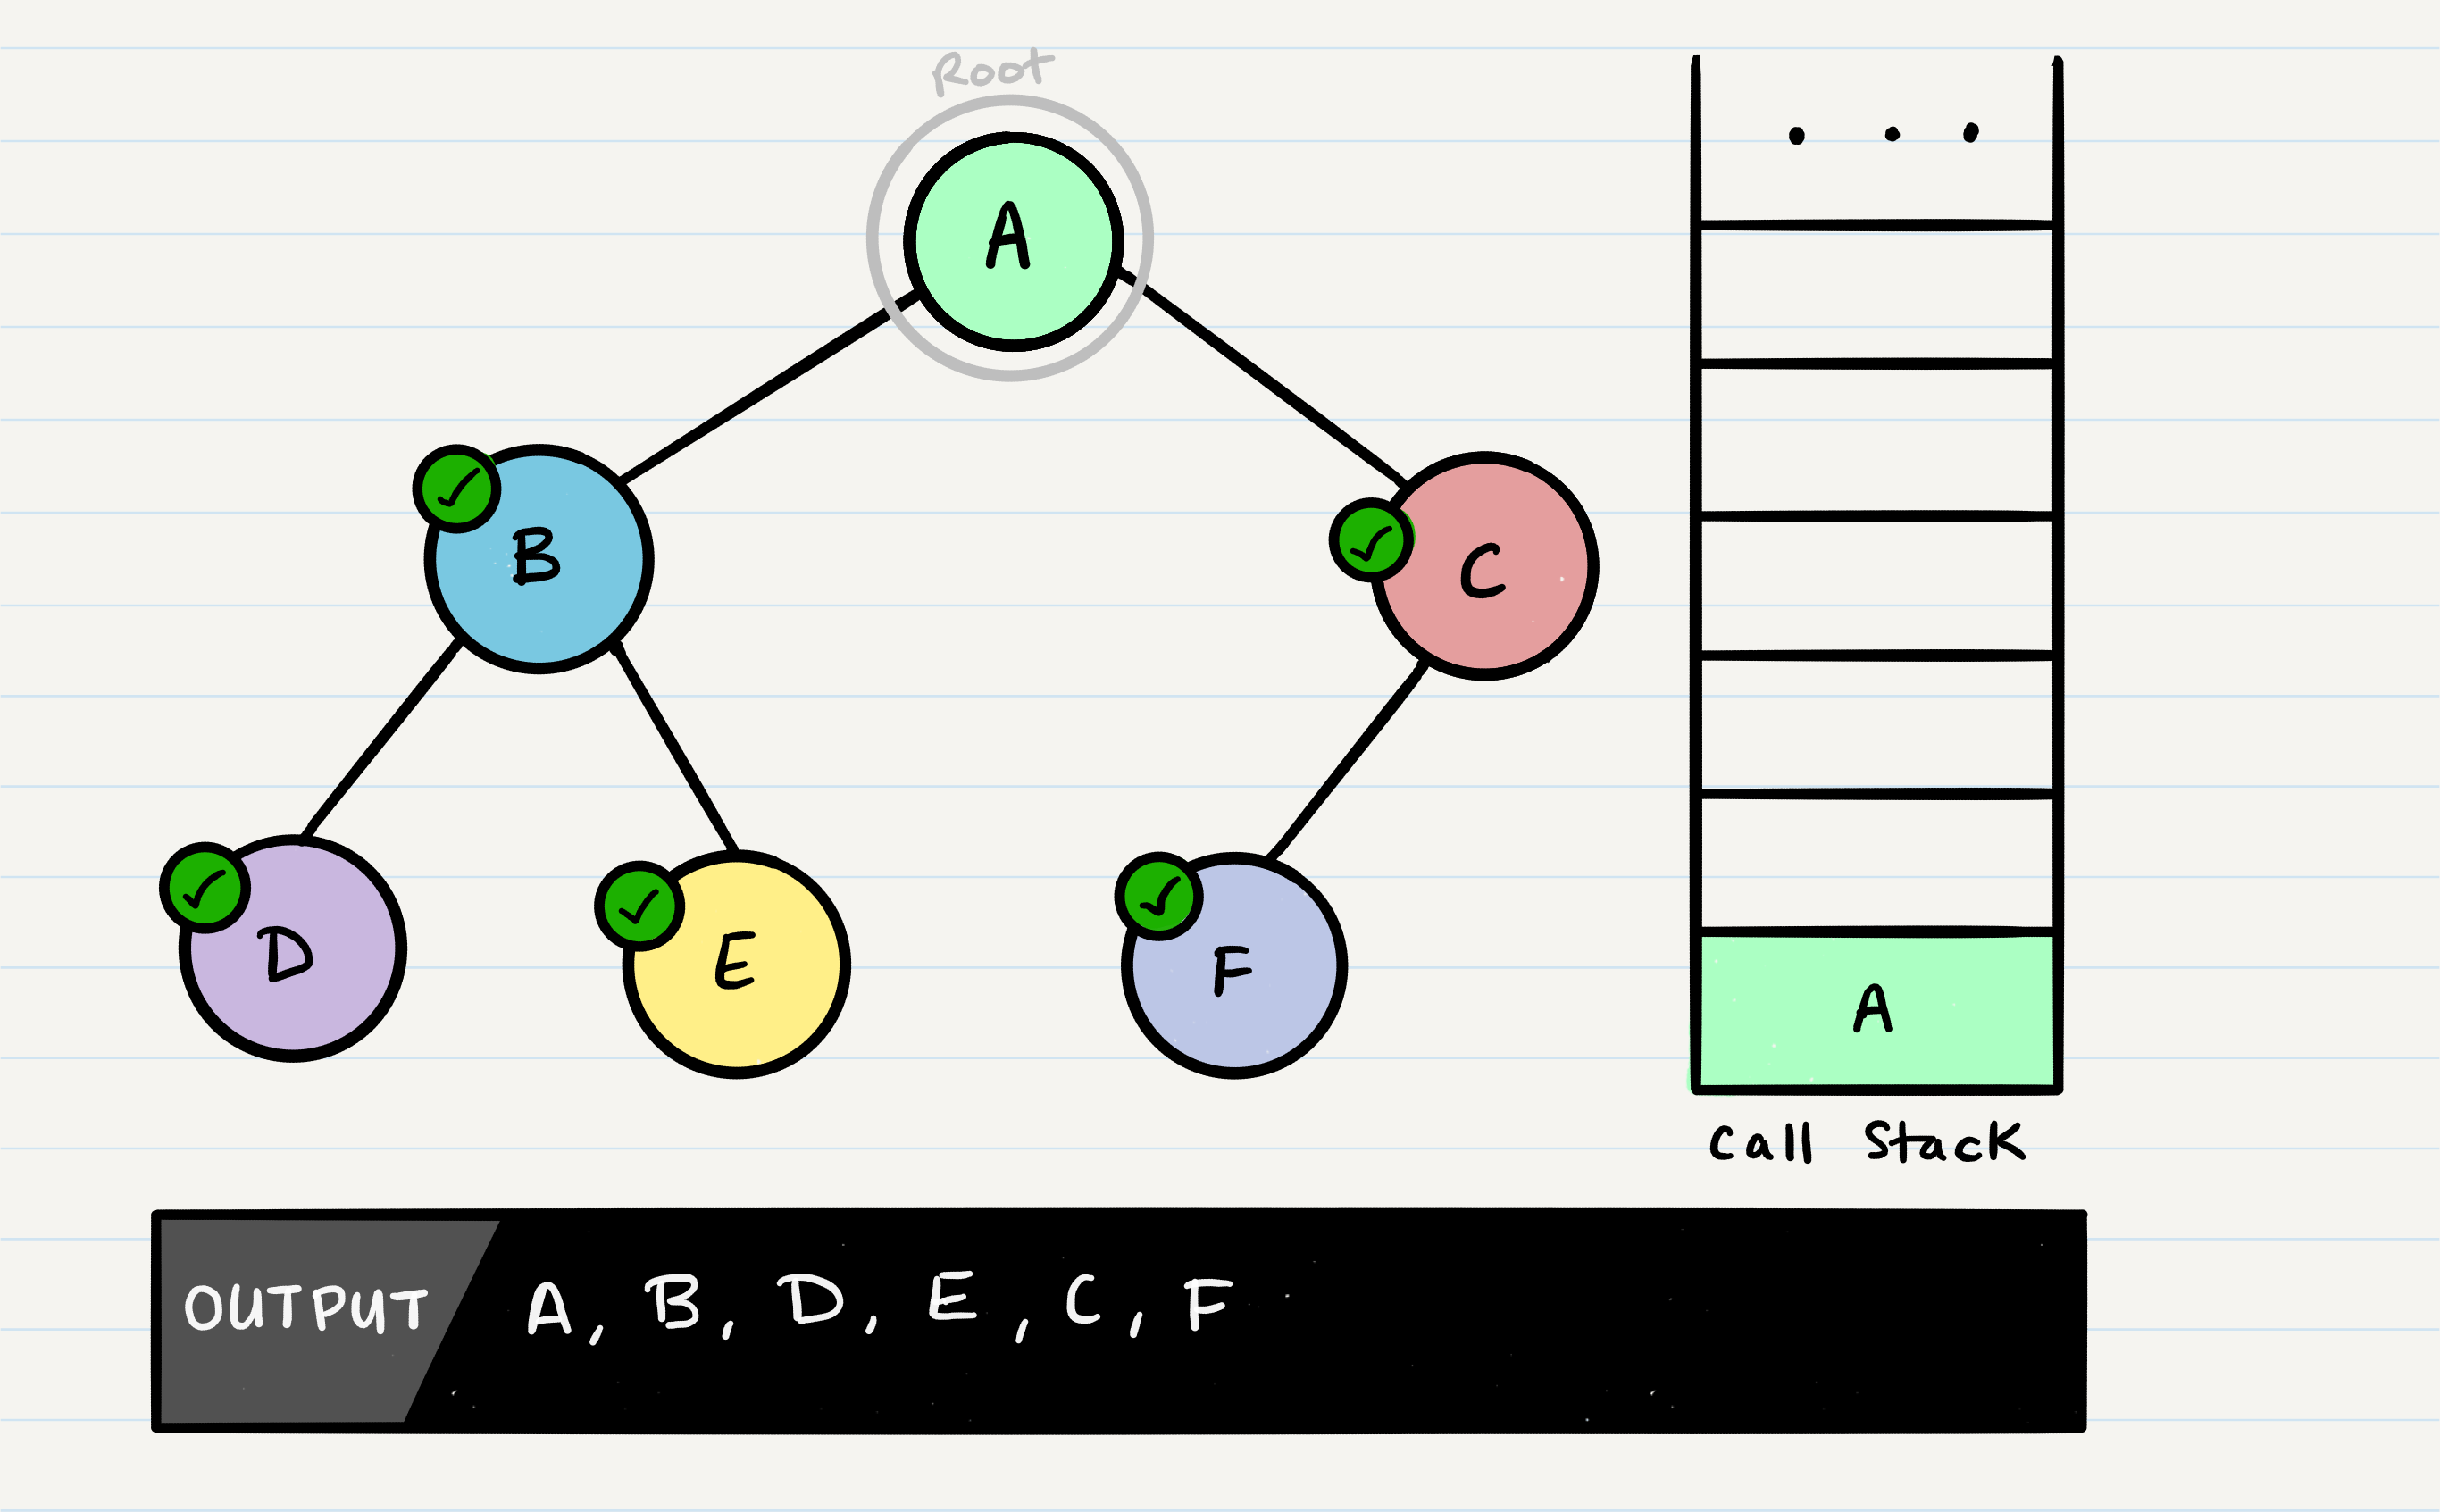 Root
A
B
C
D
E
F
...
A
Call Stack
OUTPUT
A, B, D, E, C, F